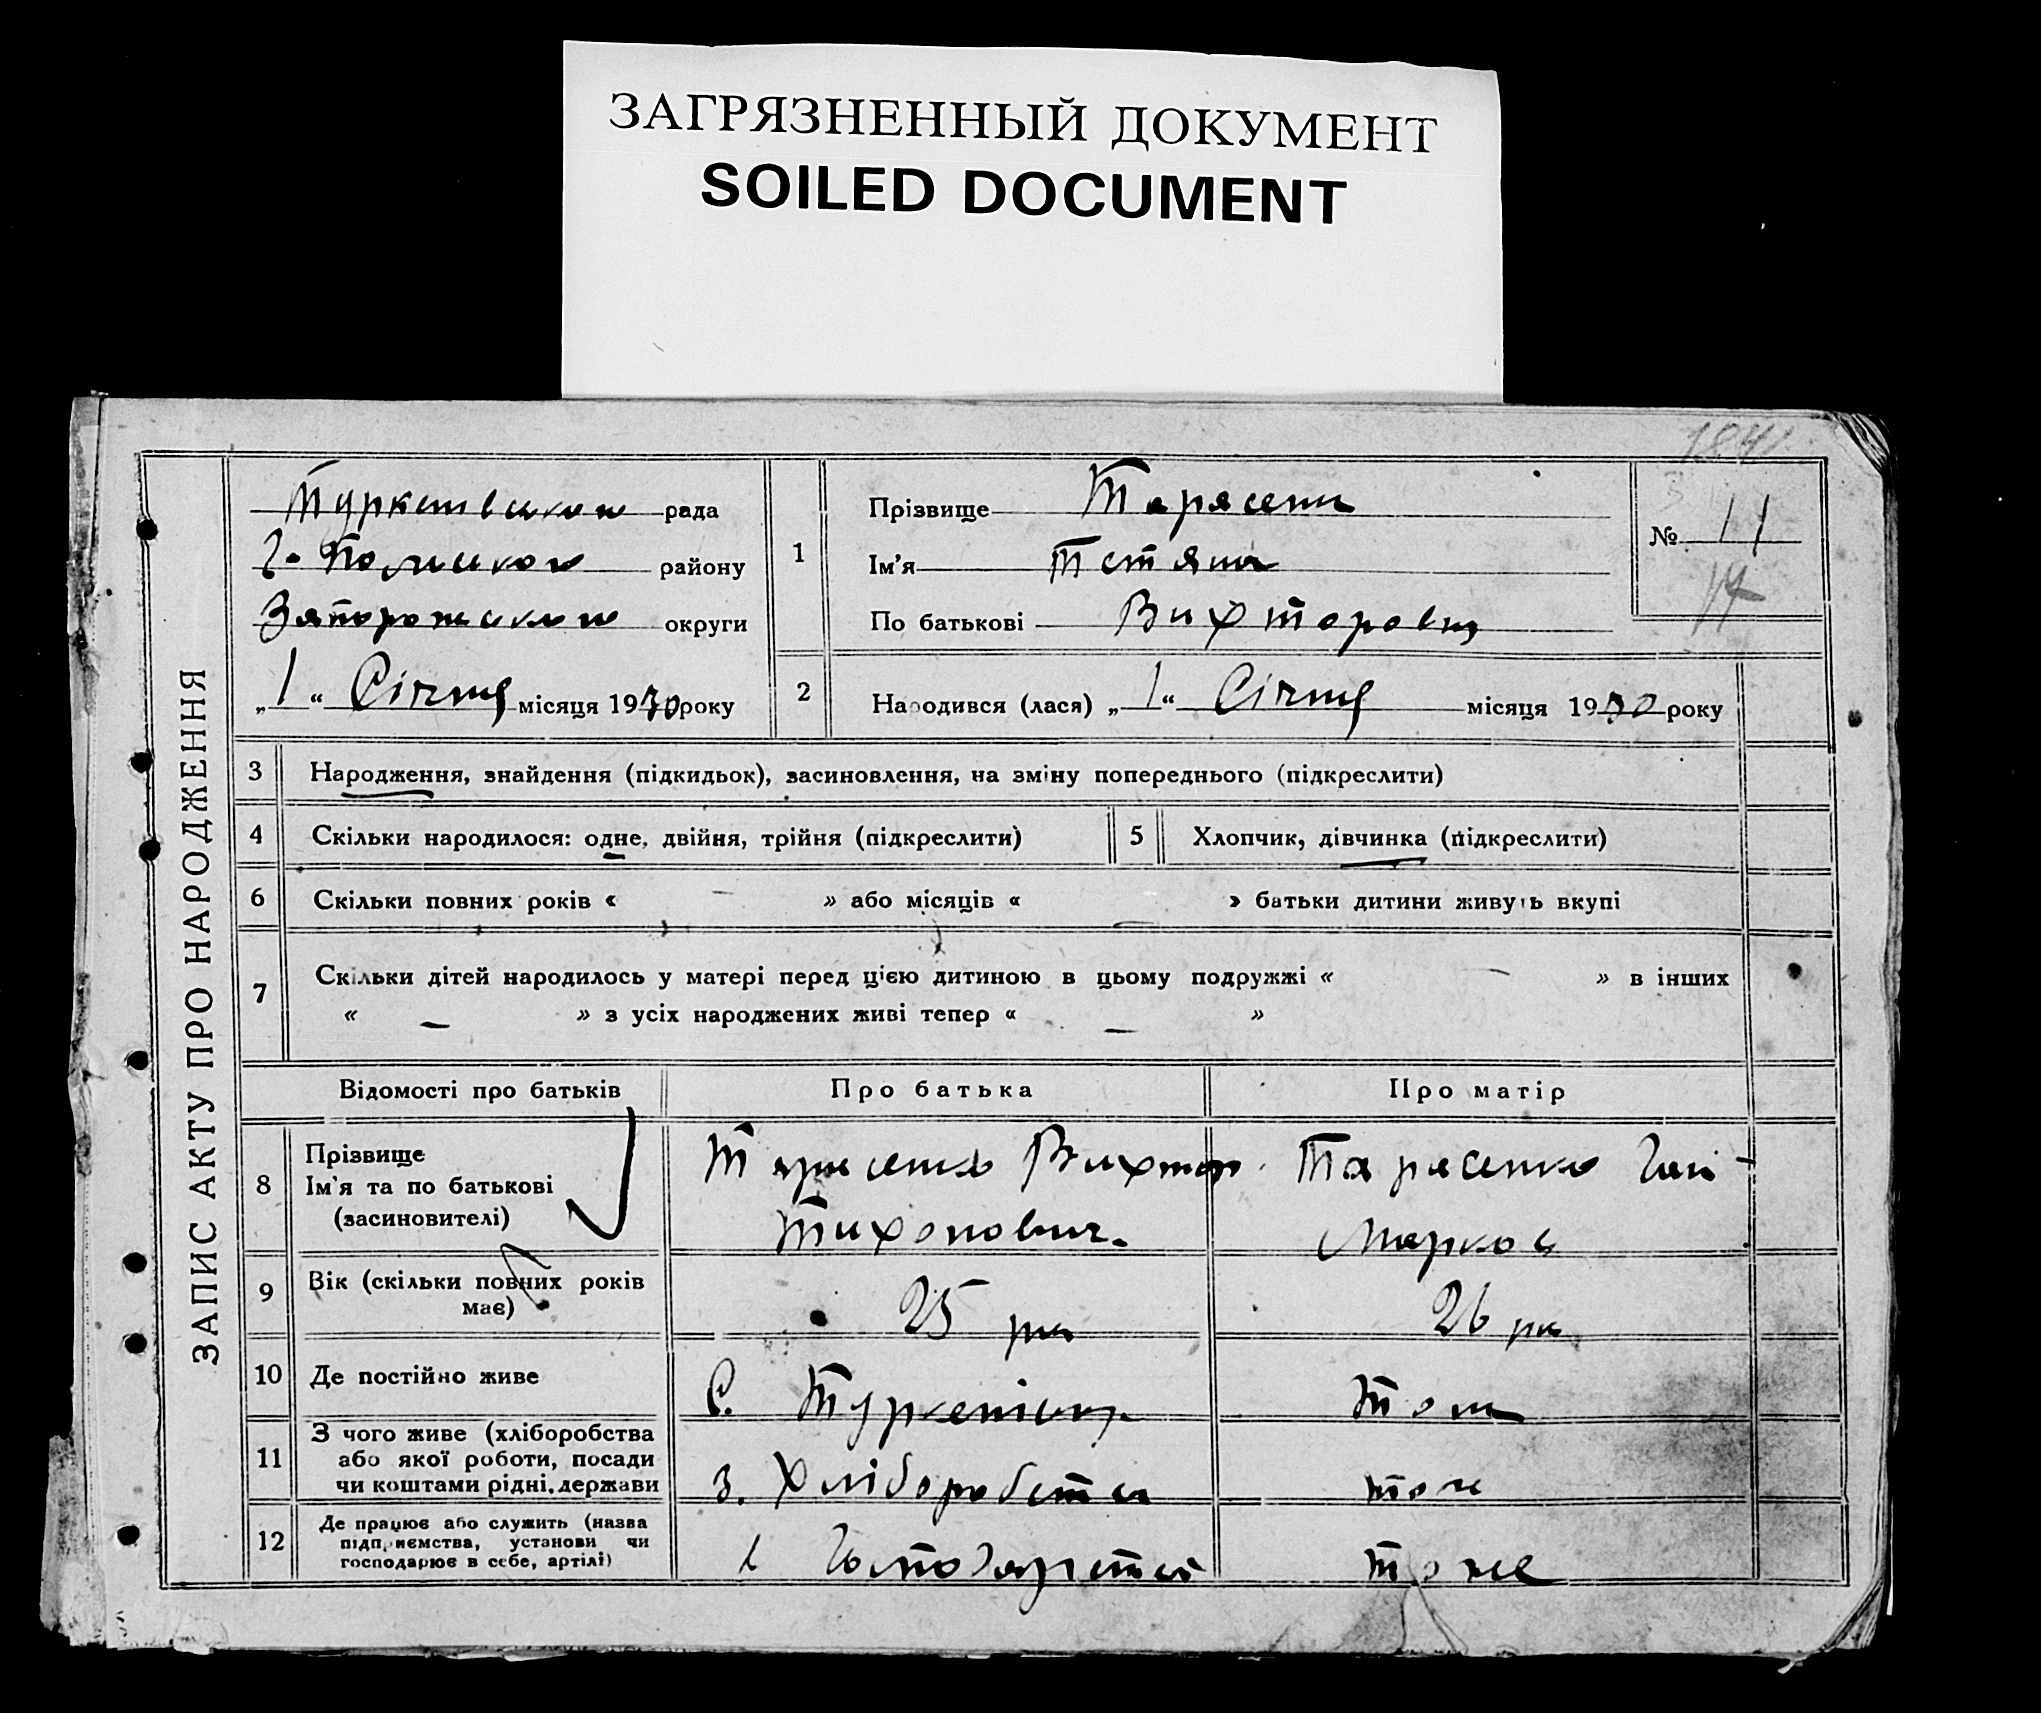 ЗАГРЯЗНЕННЫЙ ДОКУМЕНТ
SOILED DOCUMENT
ЗАПИС АКТУ ПРО НАРОДЖЕННЯ
рада
району
округи
„1“ Січня місяця 1930 року
1
Прізвище Тарасенко
Ім'я Тетяна
По батькові Вихторовна
№ 11
17
2
Народився (лася) „1“ Січня місяця 1930 року
3 Народження, знайдення (підкидьок), засиновлення, на зміну попереднього (підкреслити)
4 Скільки народилося: одне, двійня, трійня (підкреслити)
5 Хлопчик, дівчинка (підкреслити)
6 Скільки повних років « — » або місяців « — » батьки дитини живуть вкупі
7 Скільки дітей народилось у матері перед цією дитиною в цьому подружжі « — » в інших
« — » з усіх народжених живі тепер « — »
Відомості про батьків Про батька Про матір
8 Прізвище
Ім'я та по батькові
(засиновителі)
Тарасенко Вихтор
Тихонович.
Тарасенко
9 Вік (скільки повних років
має)
25 рік
26 рік
10 Де постійно живе
С.
тож
11 З чого живе (хліборобства
або якої роботи, посади
чи коштами рідні, держави
З. Хліборобства
тож
12 Де працює або служить (назва
підприємства, установи чи
господарює в себе, артілі)
тоже